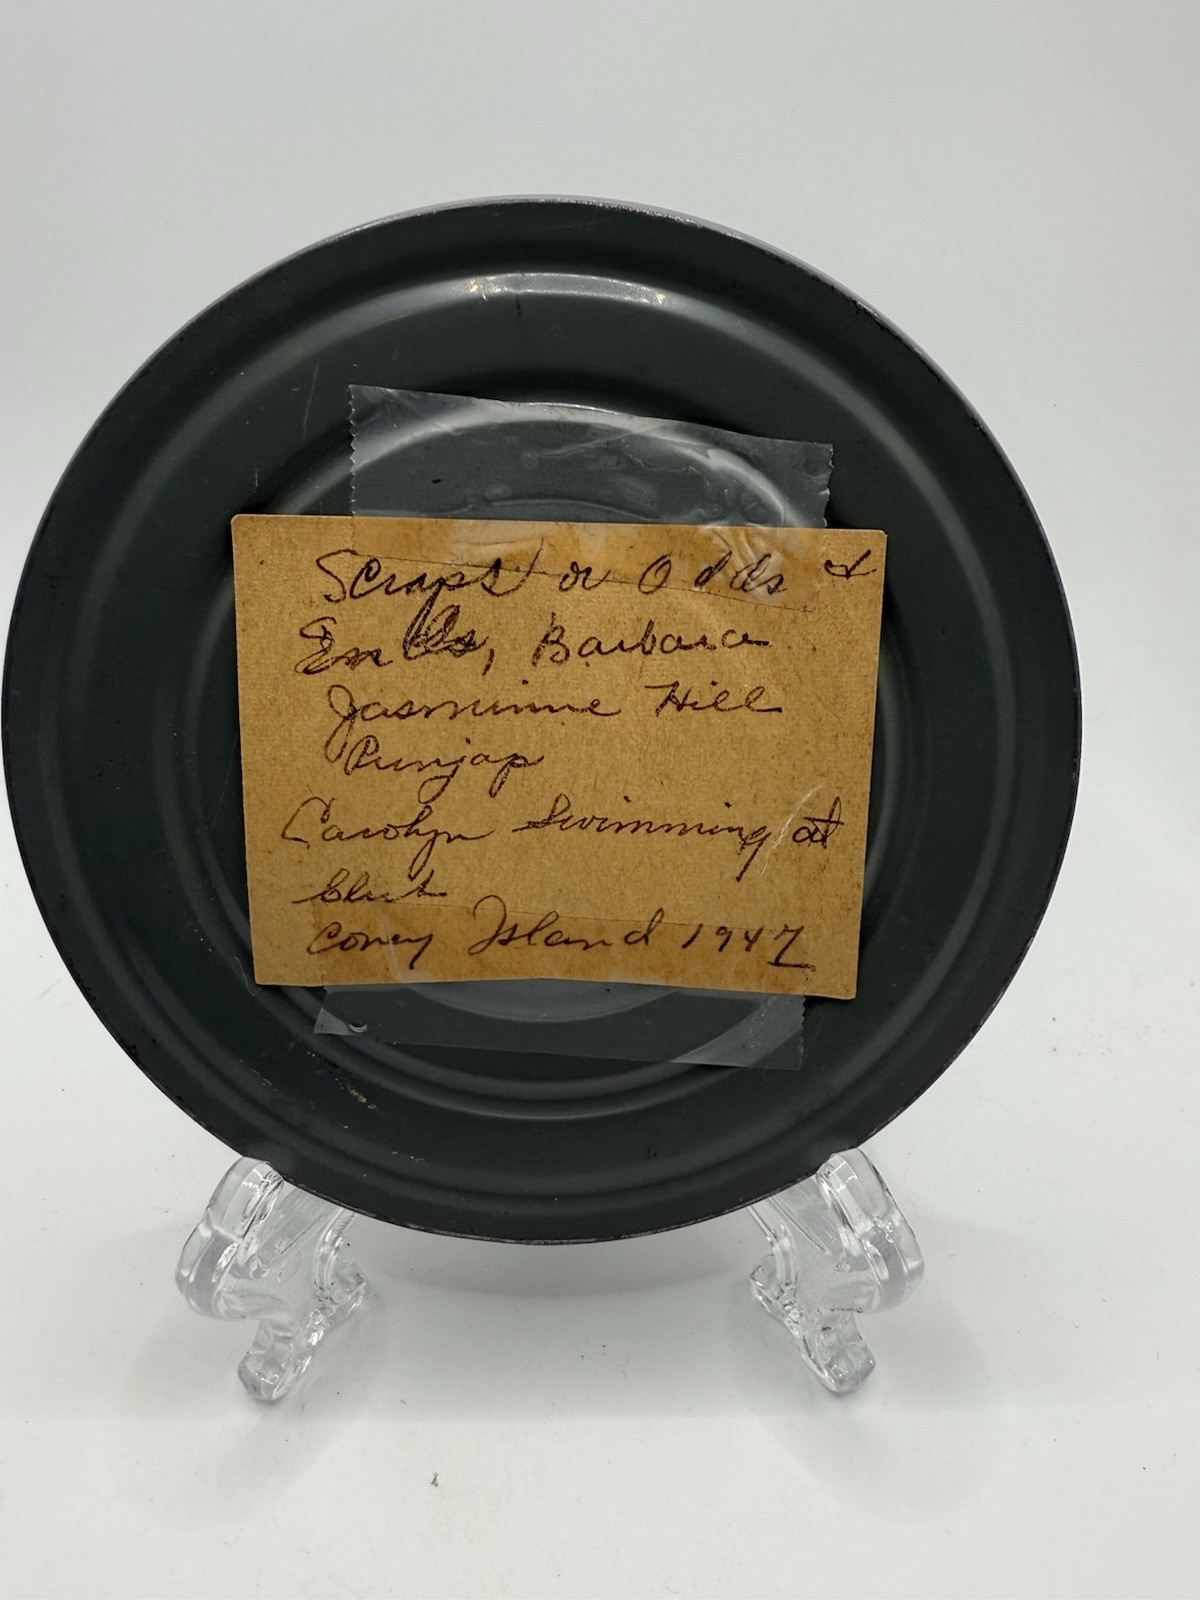 Scraps or Odds &
Ends, Barbara
Jasminne Hill
Punjap
Carolyn Swimming at
Club
Coney Island 1947